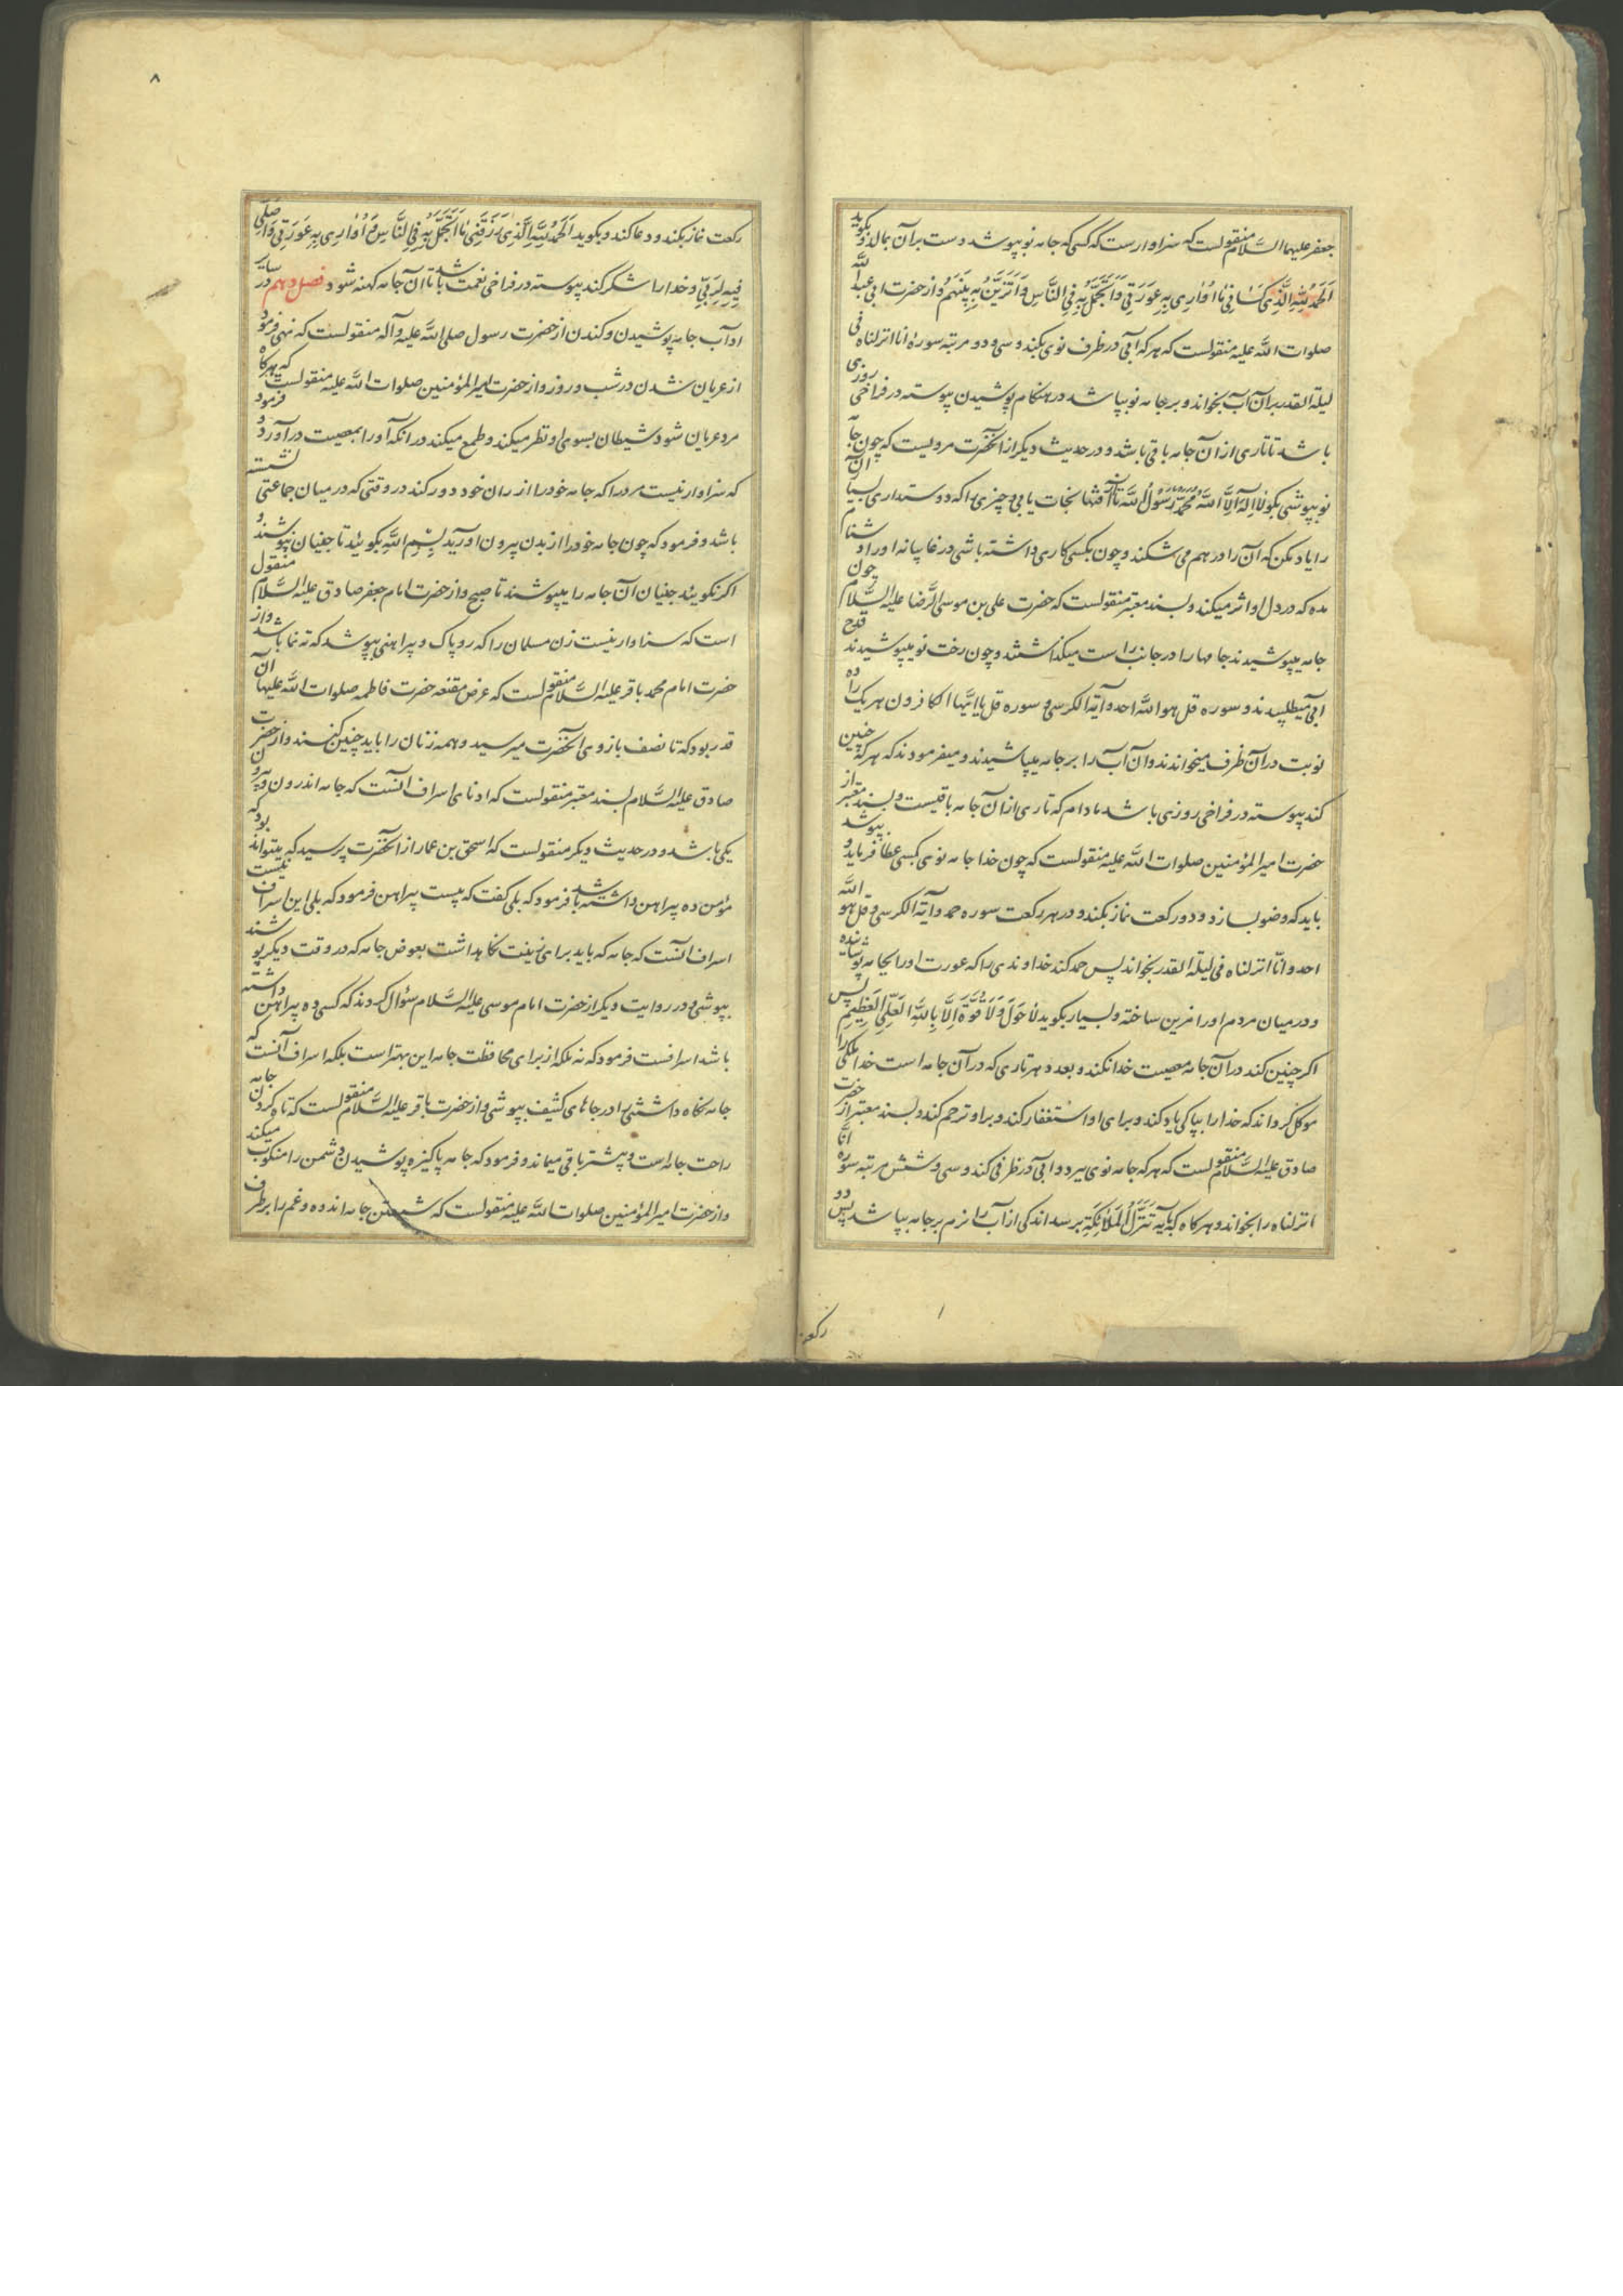 جعفر علیهما السَّلام منقولست که سزاوارست که کسی که جامه نو بپوشد دست بر آن بمالد و بکوید
اَلحَمدُ لِلّهِ الَّذِی کَسَانِی مَا اُوَارِی بِهِ عَورَتِی وَ اَتَجَمَّلُ بِهِ فِی النَّاسِ وَ اَتَزَیَّنُ بِهِ بَینَهُم و از حضرت ابی عبد الله
صلوات الله علیه منقولست که هر که آبی در ظرف نوی بکند و سی و دو مرتبه سوره انا انزلناه فی
لیلة القدر بر آن آب بخواند و بر جامه نو بپاشد در هنکام پوشیدن پیوسته در فراخی روزی
باشد تا تاری از آن جامه باقی باشد و در حدیث دیکر از آنحضرت مرویست که چون جامه
نو بپوشی بکو لا اِلهَ اِلَّا اللهُ مُحَمَّدٌ رَسُولُ اللهِ تا از آفتها نجات یابی و چیزی را که دوست داری بسیار آن
را یاد مکن که آن را در هم می شکند و چون بکسی کاری داشته باشی در غایبانه او را دشنام
مده که در دل او اثر میکند و بسند معتبر منقولست که حضرت علی بن موسی الرّضا علیه السَّلام چون
جامه میپوشیدند جامها را در جانب راست میکذاشتند و چون رخت نو میپوشیدند قدح
آبی میطلبیدند و سوره قل هو الله احد و آیة الکرسی و سوره قل یا ایّها الکافرون هر یک را ده
نوبت در آن ظرف میخواندند و آن آب را بر جامه میپاشیدند و میفرمودند که هر که چنین
کند پیوسته در فراخی روزی باشد مادام که تاری از آن جامه باقیست و بسند معتبر از
حضرت امیر المؤمنین صلوات الله علیه منقولست که چون خدا جامه نوی بکسی عطا فرماید و بپوشد
باید که وضو بسازد و دو رکعت نماز بکند و در هر رکعت سوره حمد و آیة الکرسی و قل هو الله
احد و انّا انزلناه فی لیلة القدر بخواند پس حمد کند خداوندی را که عورت او را بجامه پوشانیده
و در میان مردم او را مزین ساخته و بسیار بکوید لا حَولَ وَ لا قُوَّةَ اِلَّا بِاللهِ العَلِیِّ العَظِیمِ پس
اکر چنین کند در آن جامه معصیت خدا نکند و بعدد هر تاری که در آن جامه است خدا ملکی را
موکل کرداند که خدا را بپاکی یاد کند و برای او استغفار کند و بر او ترحم کند و بسند معتبر از حضرت
صادق علیه السَّلام منقولست که هر که جامه نوی ببرد و آبی در ظرفی کند و سی و شش مرتبه سوره انّا
انزلناه را بخواند و هر کاه که بآیه تَنَزَّلُ المَلائِکَةِ برسد اندکی از آب را نرم بر جامه بپاشد پس دو
رکعت
۸
رکعت نماز بکند و دعا کند و بکوید اَلحَمدُ لِلّهِ الَّذِی رَزَقَنِی مَا اَتَجَمَّلُ بِهِ فِی النَّاسِ وَ اُوَارِی بِهِ عَورَتِی وَ اُصَلِّی
فِیهِ لِرَبِّی و خدا را شکر کند پیوسته در فراخی نعمت باشد تا آن جامه کهنه شود فصل دهم در سایر
آداب جامه پوشیدن و کندن از حضرت رسول صلی الله علیه و آله منقولست که نهی فرمود
از عریان شدن در شب و روز و از حضرت امیر المؤمنین صلوات الله علیه منقولست که هر کاه
مرد عریان شود شیطان بسوی او نظر میکند و طمع میکند در آنکه او را بمعصیت در آورد و فرمود
که سزاوار نیست مرد را که جامه خود را از ران خود دور کند در وقتی که در میان جماعتی نشسته
باشد و فرمود که چون جامه خود را از بدن بیرون آورید بِسمِ اللهِ بکوئید تا جنیان نپوشند و
اکر نکوئید جنیان آن جامه را میپوشند تا صبح و از حضرت امام جعفر صادق علیه السَّلام منقول
است که سزاوار نیست زن مسلمان را که روپاک و پیراهنی بپوشد که ته نما باشد و از
حضرت امام محمد باقر علیه السَّلام منقولست که عرض مقنعه حضرت فاطمه صلوات الله علیها آن
قدر بود که تا نصف بازوی آنحضرت میرسید و همه زنان را باید چنین کنند و از حضرت
صادق علیه السَّلام بسند معتبر منقولست که ادنای اسراف آنست که جامه اندرون و بیرون
یکی باشد و در حدیث دیکر منقولست که اسحق بن عمار از آنحضرت پرسید که میتواند بود که
مؤمن ده پیراهن داشته باشد فرمود که بلی کفت که بیست پیراهن فرمود که بلی این اسراف نیست
اسراف آنست که جامه که باید برای زینت نکاهداشت بعوض جامه که در وقت دیکر پوشند
بپوشی و در روایت دیکر از حضرت امام موسی علیه السَّلام سؤال کردند که کسی ده پیراهن داشته
باشد اسرافست فرمود که نه بلکه از برای محافظت جامه این بهتر است بلکه اسراف آنست که
جامه نکاه داشتنی را در جاهای کثیف بپوشی و از حضرت باقر علیه السَّلام منقولست که تاه کردن جامه
راحت جامه است و بیشتر باقی میماند و فرمود که جامه پاکیزه پوشیدن دشمن را منکوب میکند
و از حضرت امیر المؤمنین صلوات الله علیه منقولست که شستن جامه اندوه و غم را بر طرف